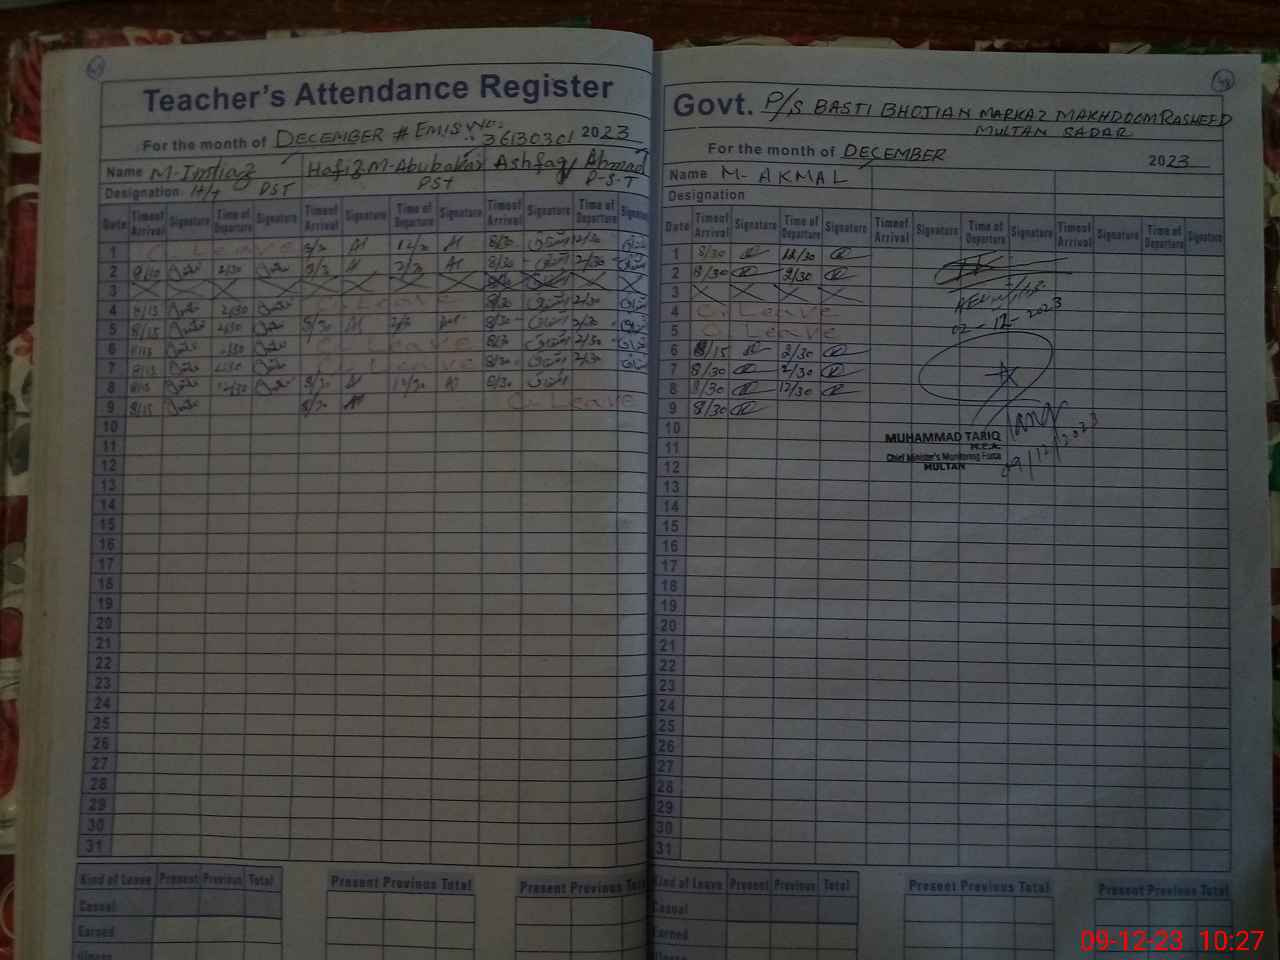 Teacher's Attendance Register
For the month of DECEMBER # EMIS No: 36130301 2023
Name M-Imtiaz Hafiz M-Abubakar Ashfaq Ahmad
Designation H/T PST PST P-S-T
Date Time of Arrival Signature Time of Departure Signature Time of Arrival Signature Time of Departure Signature Time of Arrival Signature Time of Departure Signature
1 C. Leave 8/30 12/30 8/30 12/30
2 8/30 2/30 8/30 2/30 8/30 2/30
3
4 8/15 2/30 C. Leave 8/30 2/30
5 8/15 2/30 8/30 2/30 8/30 2/30
6 8/15 2/30 C. Leave 8/30 2/30
7 8/15 2/30 C. Leave 8/30 2/30
8 8/15 12/30 8/30 12/30 8/30
9 8/15 8/30 C. Leave
10
11
12
13
14
15
16
17
18
19
20
21
22
23
24
25
26
27
28
29
30
31
Kind of Leave Present Previous Total Present Previous Total Present Previous Total
Casual
Earned
Govt. P/S BASTI BHOTIAN MARKAZ MAKHDOOM RASHEED
MULTAN SADAR
For the month of DECEMBER 2023
Name M- AKMAL
Designation
Date Time of Arrival Signature Time of Departure Signature Time of Arrival Signature Time of Departure Signature Time of Arrival Signature Time of Departure Signature
1 8/30 12/30
2 8/30 2/30
3
4 C. Leave
5 C. Leave
6 8/15 2/30
7 8/30 2/30
8 8/30 12/30
9 8/30
10
11
12
13
14
15
16
17
18
19
20
21
22
23
24
25
26
27
28
29
30
31
02-12-2023
MUHAMMAD TARIQ
M.E.A.
Chief Minister's Monitoring Force
MULTAN
09/12/2023
Kind of Leave Present Previous Total Present Previous Total Present Previous Total
Casual
Earned
09-12-23 10:27